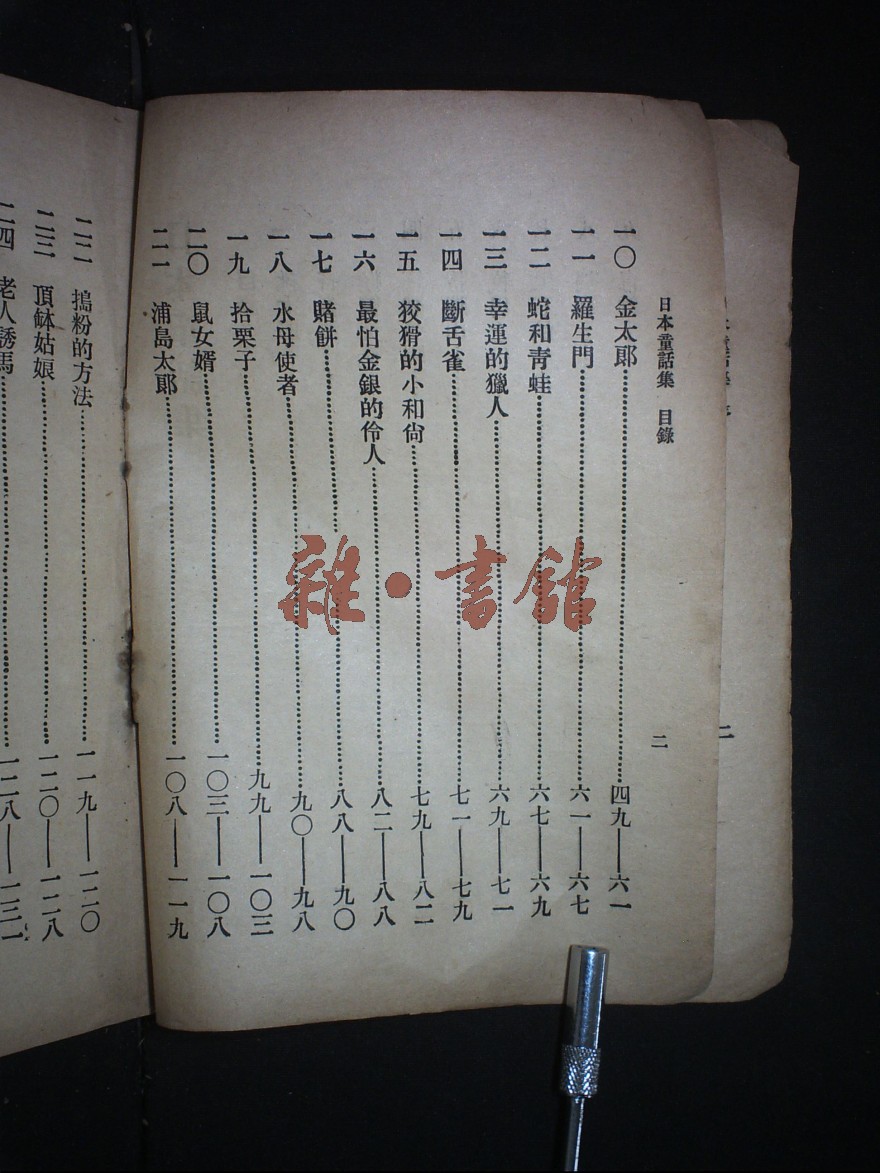 日本童話集 目錄
二
一〇 金太郎……四九——六一
一一 羅生門……六一——六七
一二 蛇和青蛙……六七——六九
一三 幸運的獵人……六九——七一
一四 斷舌雀……七一——七九
一五 狡猾的小和尙……七九——八二
一六 最怕金銀的伶人……八二——八八
一七 賭餅……八八——九〇
一八 水母使者……九〇——九八
一九 拾栗子……九九——一〇三
二〇 鼠女婿……一〇三——一〇八
二一 浦島太郎……一〇八——一一九
二二 搗粉的方法……一一九——一二〇
二三 頂鉢姑娘……一二〇——一二八
二四 老人誘馬……一二八——一三一
雜·書館